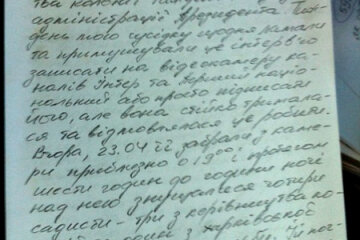 адміністрації Президента. Тиж-
день мою сусідку щодня ламали
та примушували це інтерв'ю
записати на відеокамеру ка-
налів Інтер та Перший націо-
нальний або просто підписати
його, але вона стійко трималa-
ся та відмовлялася це робити.
Вчора, 23.04.12 забрали з каме-
ри приблизно о 19⁰⁰ і протягом
шести годин до години ночі
над нею знущалися чотири
садисти – три з керівництва ко-
один з харківської